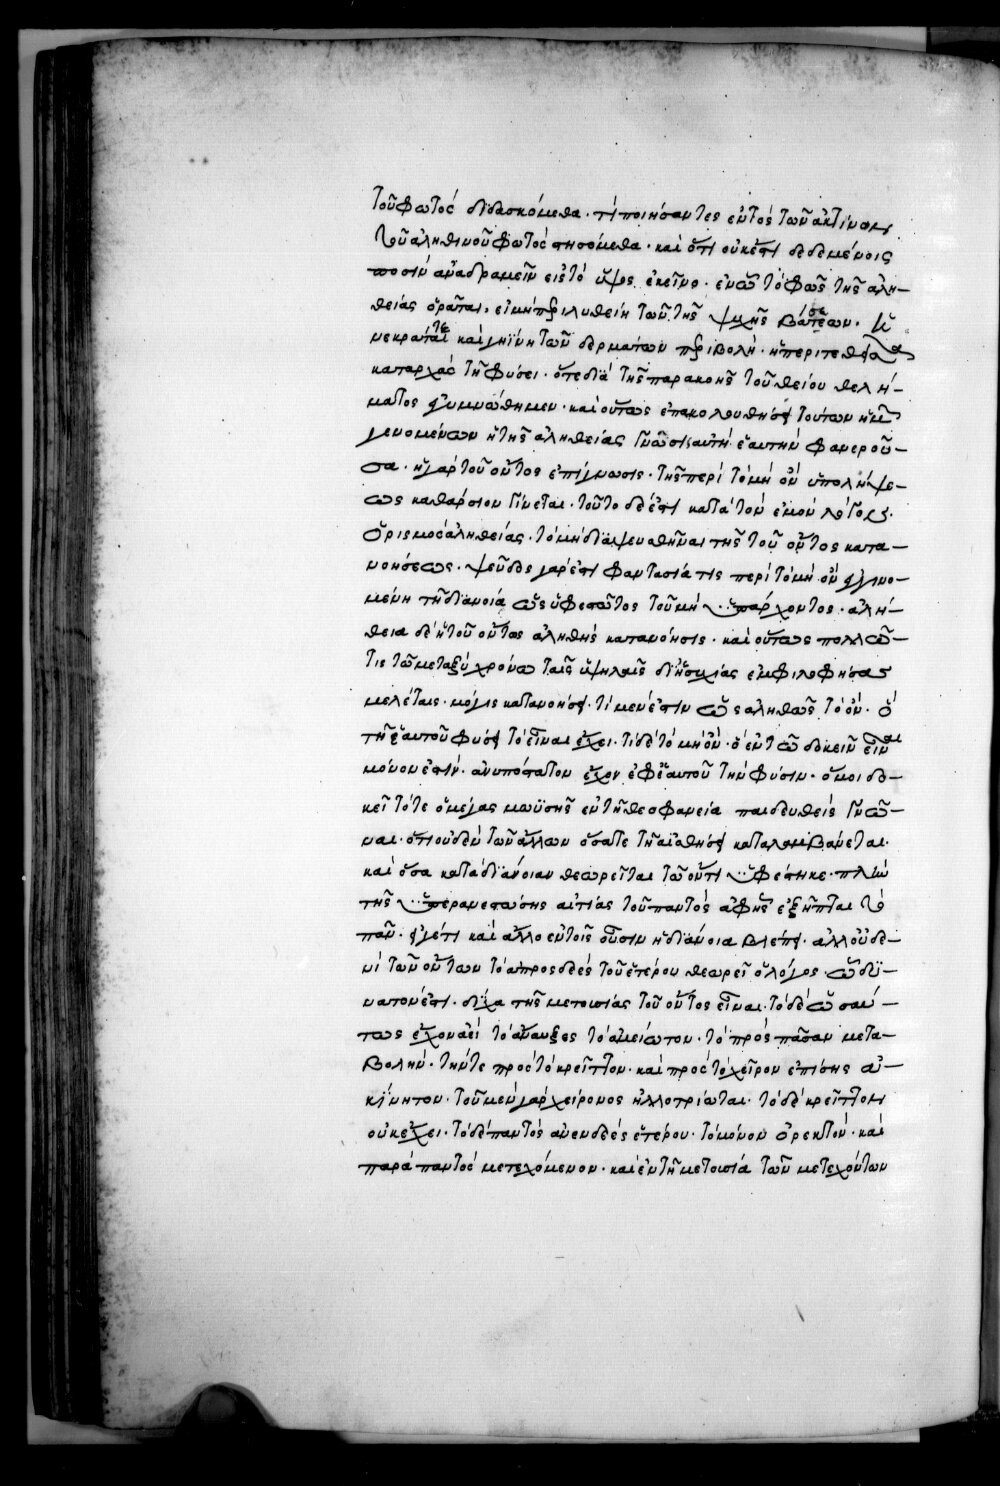 τοῦ φωτὸς διδασκόμεθα· τί ποιήσαντες ἐντὸς τῶν ἀκτίνων
τοῦ ἀληθινοῦ φωτὸς στησόμεθα· καὶ ὅτι οὐκ ἔστι δεδεμένοις
ποσὶν ἀναδραμεῖν εἰς τὸ ὕψος ἐκεῖνο· ἐν ᾧ τὸ φῶς τῆς ἀλη–
θείας ὁρᾶται, εἰ μὴ περιλυθείη τῶν τῆς ψυχῆς βάσεων· ἡ
νεκρά τε καὶ γηΐνη τῶν δερμάτων περιβολή· ἡ περιτεθεῖσα
καταρχὰς τῇ φύσει· ὅτε διὰ τῆς παρακοῆς τοῦ θείου θελή–
ματος ἐγυμνώθημεν· καὶ οὕτως ἐπακολουθήσει τούτων ἡμῖν
γενομένων ἡ τῆς ἀληθείας γνῶσις αὐτὴ ἑαυτὴν φανεροῦ–
σα· ἡ γὰρ τοῦ ὄντος ἐπίγνωσις· τῆς περὶ τὸ μὴ ὂν ὑπολήψε–
ως καθάρσιον γίνεται· τοῦτο δέ ἐστι κατὰ τὸν ἐμὸν λόγον·
ὁρισμὸς ἀληθείας· τὸ μὴ διαψευσθῆναι τῆς τοῦ ὄντος κατα–
νοήσεως· ψεῦδος γάρ ἐστι φαντασία τις περὶ τὸ μὴ ὂν ἐγγινο–
μένη τῇ διανοίᾳ ὡς ὑφεστῶτος τοῦ μὴ ὑπάρχοντος· ἀλή–
θεια δὲ ἡ τοῦ ὄντως ἀληθὴς κατανόησις· καὶ οὕτως πολλῷ–
τις τῷ μεταξὺ χρόνῳ ταῖς ὑψηλαῖς δι' ἡσυχίας ἐμφιλοσοφήσας
μελέταις· μόγις κατανοήσει· τί μέν ἐστιν ὡς ἀληθῶς τὸ ὄν· ὃ
τῇ ἑαυτοῦ φύσει τὸ εἶναι ἔχει· τί δὲ τὸ μὴ ὄν· ὃ ἐν τῷ δοκεῖν εἶναι
μόνον ἐστίν· ἀνυπόστατον ἔχον ἐφ' ἑαυτοῦ τὴν φύσιν· ὅ μοι δο–
κεῖ τότε ὁ μέγας μωϋσῆς ἐν τῇ θεοφανείᾳ παιδευθεὶς γνῶ–
ναι· ὅτι οὐδὲν τῶν ἄλλων ὅσα τε τῇ αἰσθήσει καταλαμβάνεται·
καὶ ὅσα κατὰ διάνοιαν θεωρεῖται τῷ ὄντι ὑφέστηκε· πλὴν
τῆς ὑπερανεστώσης αἰτίας τοῦ παντὸς ἀφ' ἧς ἐξῆπται τὸ
πᾶν· εἰ γάρ τι καὶ ἄλλο ἐν τοῖς οὖσιν ἡ διάνοια βλέπει· ἀλλ' οὐδε–
νὶ τῶν ὄντων τὸ ἀπροσδεὲς τοῦ ἑτέρου θεωρεῖ ὁ λόγος· ᾧ δυ–
νατόν ἐστι· δίχα τῆς μετουσίας τοῦ ὄντος εἶναι· τὸ δὲ ὡσαύ–
τως ἔχον ἀεὶ τὸ ἀναυξὲς τὸ ἀμείωτον· τὸ πρὸς πᾶσαν μετα–
βολὴν· τήν τε πρὸς τὸ κρεῖττον· καὶ πρὸς τὸ χεῖρον ἐπίσης ἀ–
κίνητον· τοῦ μὲν γὰρ χείρονος ἠλλοτρίωται· τὸ δὲ κρεῖττον
οὐκ ἔχει· τὸ δὲ παντὸς ἀνενδεὲς ἑτέρου· τὸ μόνον ὀρεκτὸν· καὶ
παρὰ παντὸς μετεχόμενον· καὶ ἐν τῇ μετουσίᾳ τῶν μετεχόντων